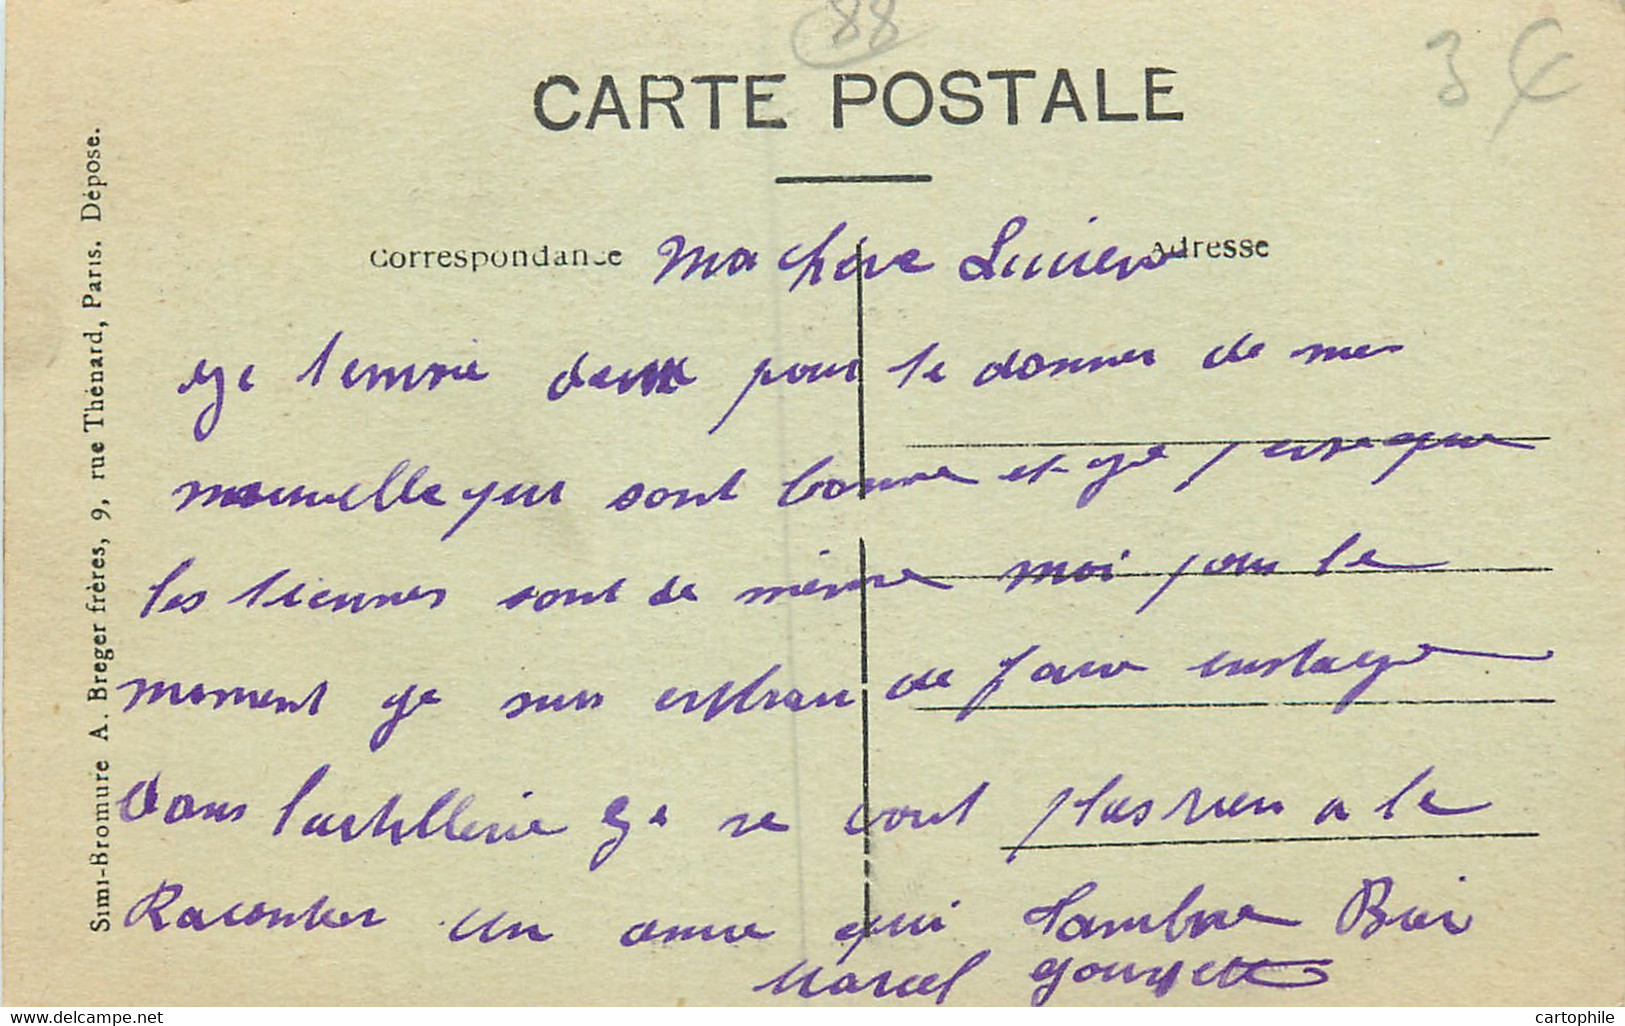 88
3 €
CARTE POSTALE
Correspondance
Adresse
Simi-Bromure A. Breger frères, 9, rue Thénard, Paris. Déposé.
Ma chère Lucien
ge t'envoie pour te donner de mes
nouvelle qui sont bonne et ge pense que
les tiennes sont de même moi pour le
moment ge suis de faire
dans l'artillerie ge ne plus rien a te
Raconter un amie qui Bien
Marcel
www.delcampe.net
cartophile